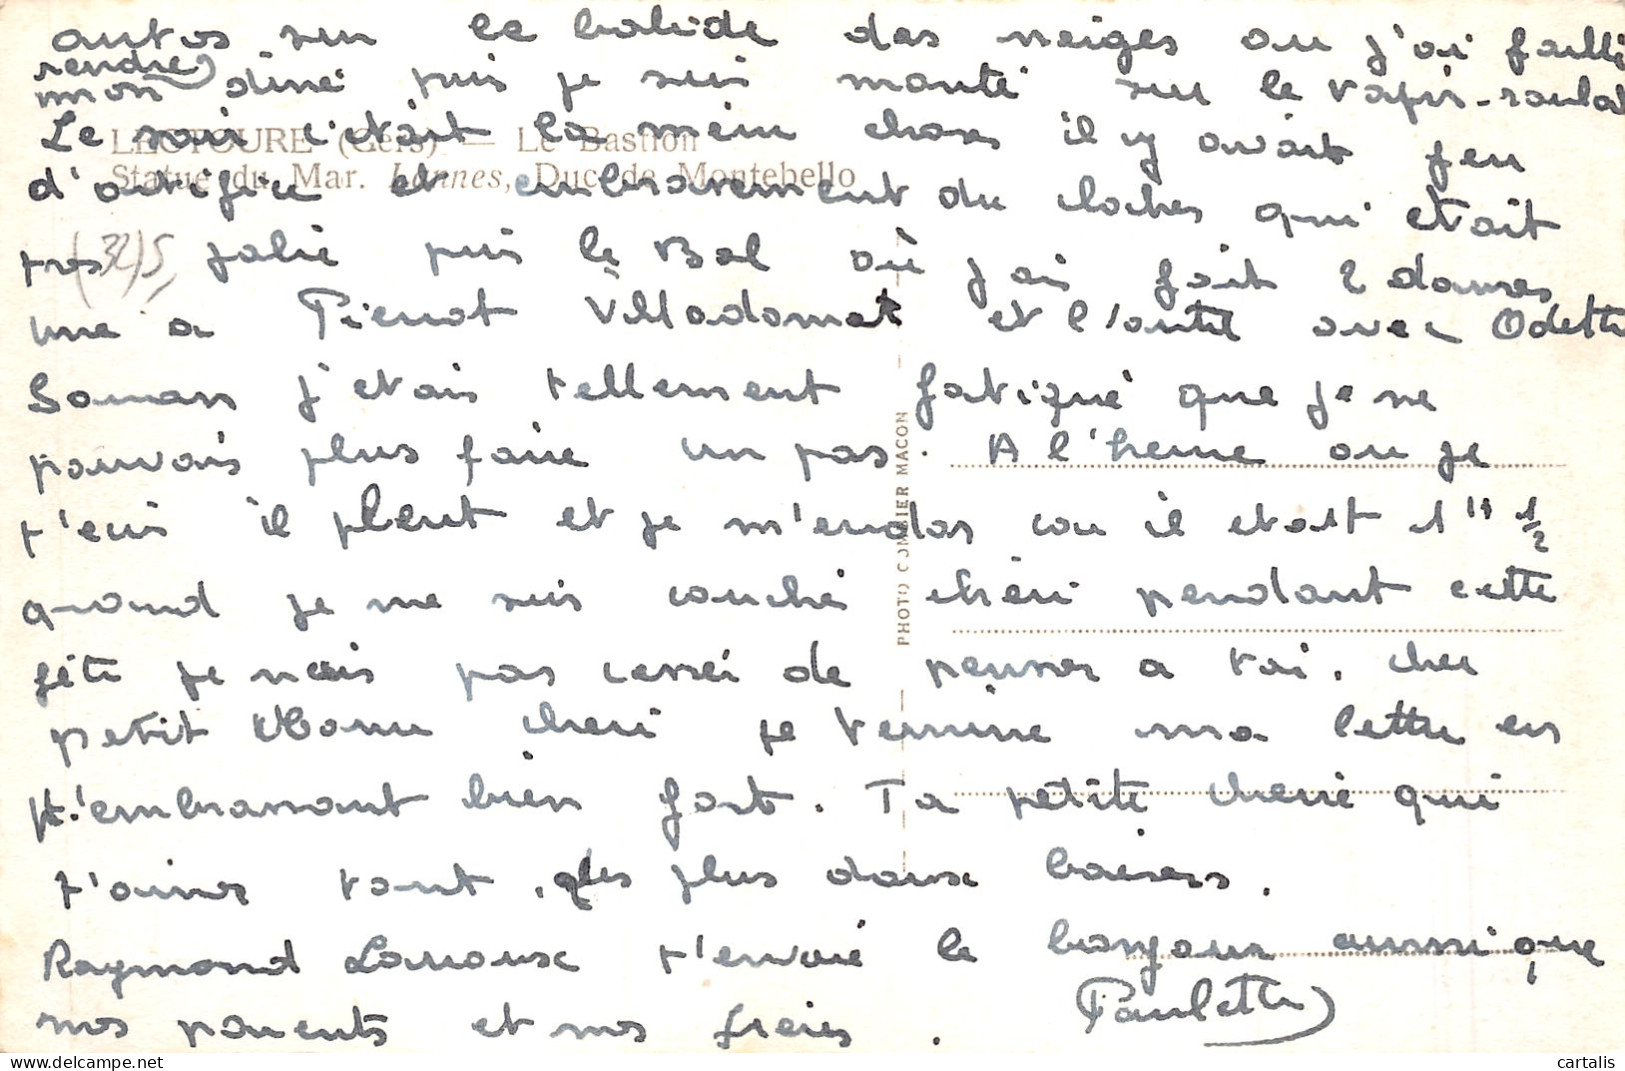 autos sur le bolide des neiges ou j'ai failli
rendre
mon diné puis je suis monté sur le vapir-roulat
Le soir c'etait la mem chose il y avait feu
LECTOURE (Gers) — Le Bastion
Statue du Mar. Lannes, Duc de Montebello
d'artifice et embrasement du cloches qui etait
(32) 5
pres jolie puis le Bal où j'ai fait 2 danses
une a Pierrot Villadomat et l'autre avec Odette
Soman j'etais tellement fatiqué que je ne
pouvais plus faire un pas. A l'heure ou je
t'ecris il pleut et je m'endors car il etait 1" 1/2
quand je me suis couché chéri pendant cette
féte je nais pas cessei de penser a toi. cher
petit Nonu cheri je termine ma lettre en
t'embrassant bien fort. Ta petite cherie qui
t'aimes tant. des plus doux baisers.
Raymond Larroux t'envoie le bonjour aussi que
mes parents et mes freres. Paulette
PHOTO COMBIER MACON
cartalis